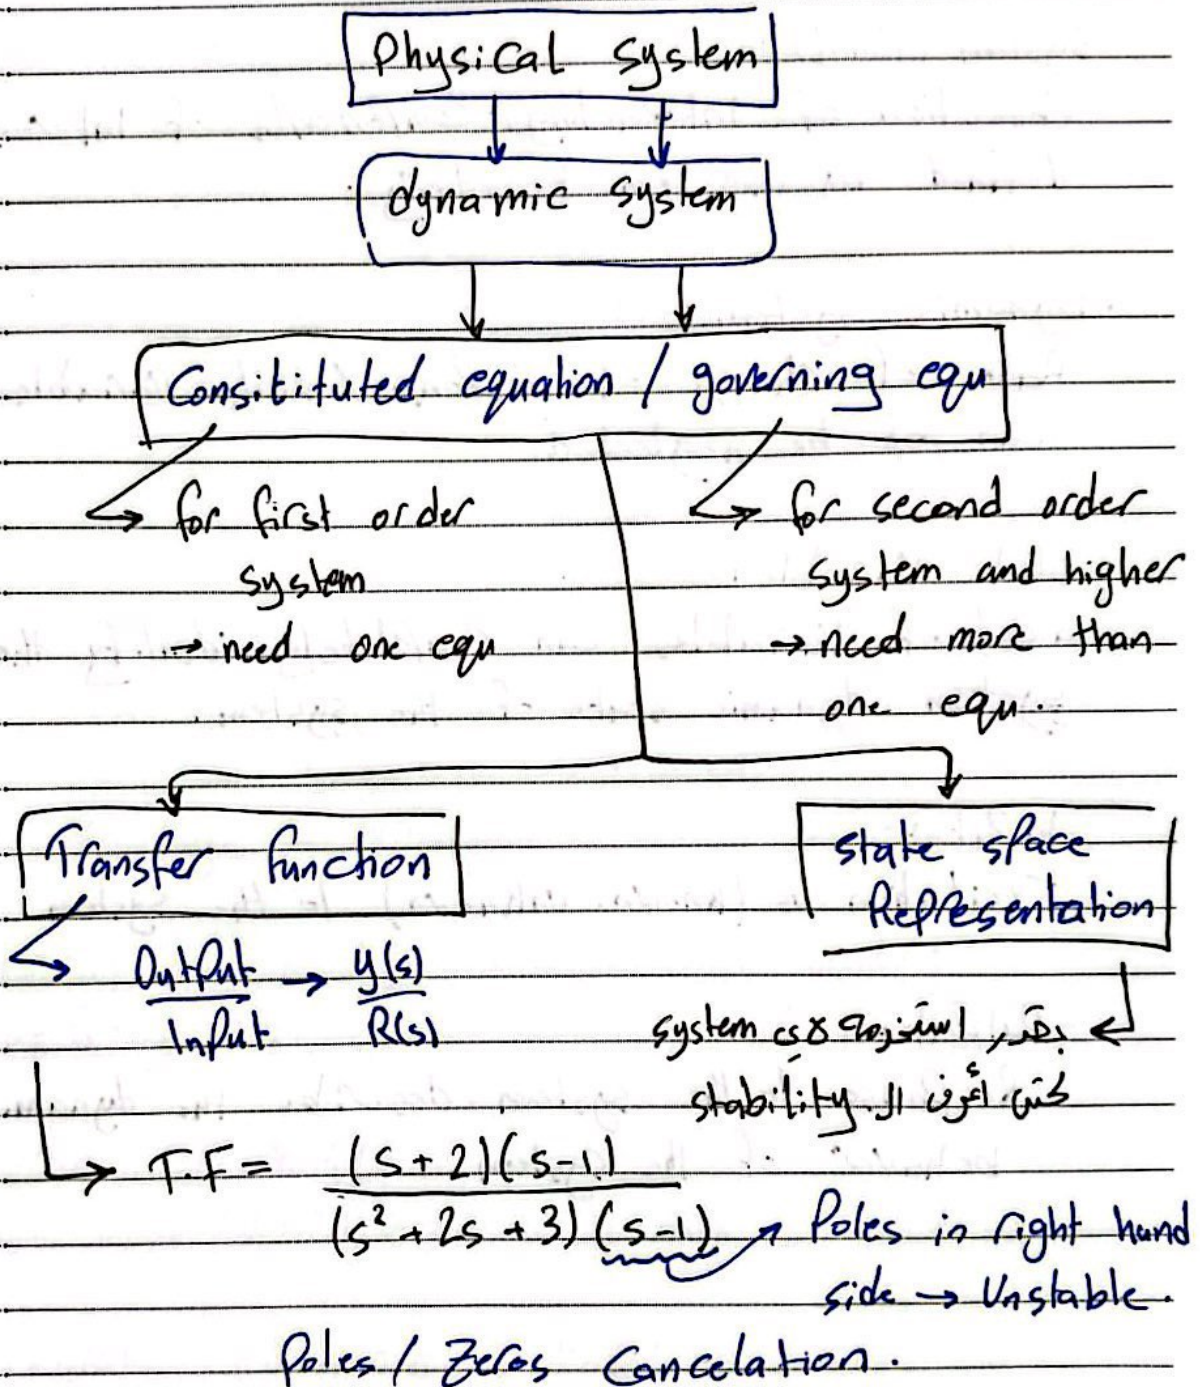 Physical system
dynamic system
Consitituted equation / governing equ
↳ for first order
system
→ need one equ
↳ for second order
system and higher
→ need more than
one equ.
Transfer function
State space
Representation
Output / Input → y(s) / R(s)
بقدر استخرمه لاي system
لحتى أعرف ال stability
T.F = (s+2)(s-1) / (s² + 2s + 3)(s-1)
Poles in right hand
side → Unstable.
Poles / Zeros Cancelation.